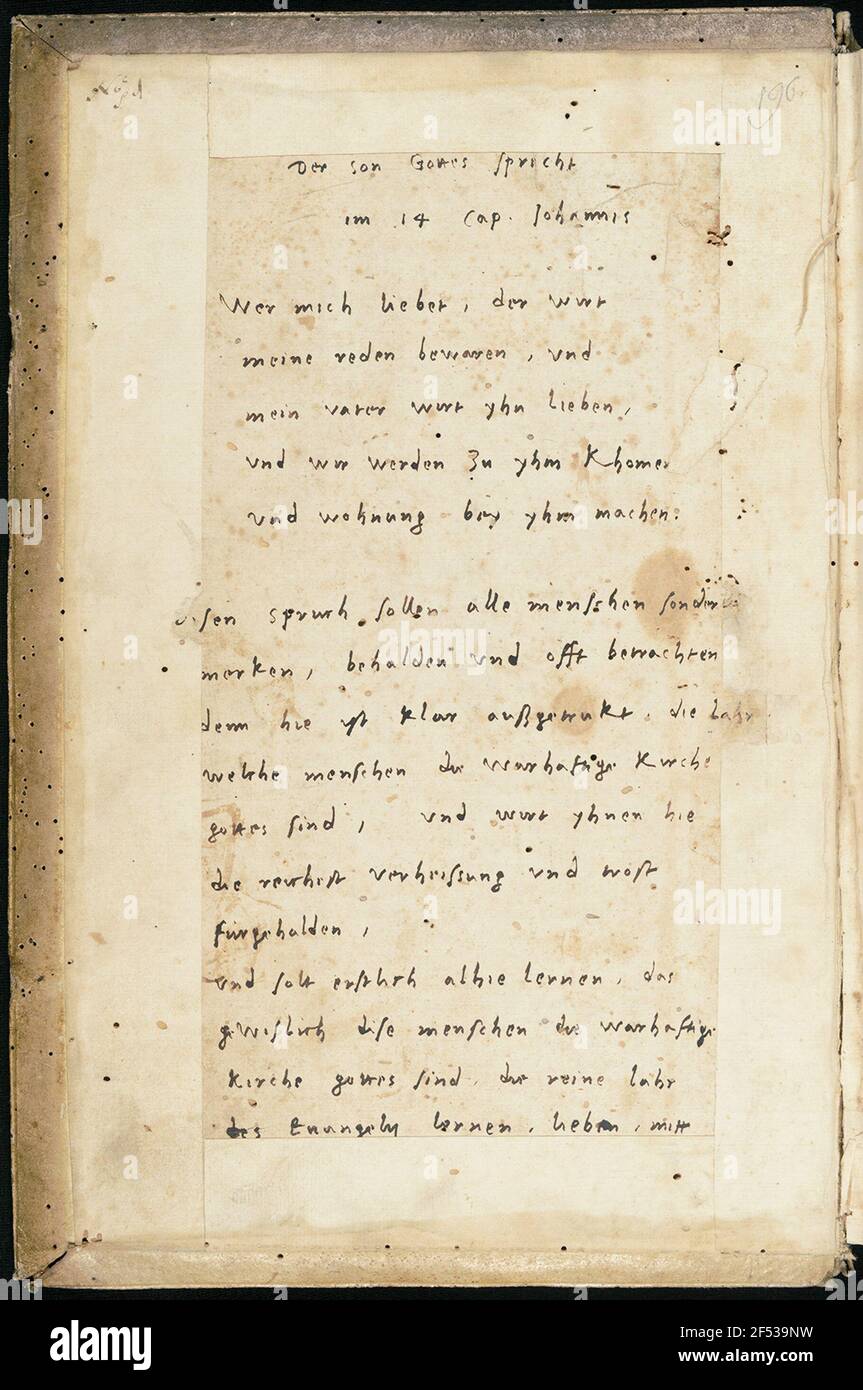 196
Der son Gottes spricht
im 14 Cap. Johannis
Wer mich liebet, der wirt
meine reden bewaren, vnd
mein vater wirt yhn lieben,
vnd wir werden zu yhm Khomen
vnd wohnung bey yhm machen.
spruch sollen alle menschen
merken, behalden vnd offt betrachten
denn hie ist klar außgetrukt, die lahr
welche menschen die warhafftige Kirche
gottes sind, vnd wirt yhnen hie
die reichist verheissung vnd trost
furgehalden,
vnd solt erstlich alhie lernen, das
gewislich dise menschen die warhafftige
Kirche gottes sind, die reine lahr
des Euangelij lernen, lieben, mitt
alamy
Image ID: 2F539NW
www.alamy.com